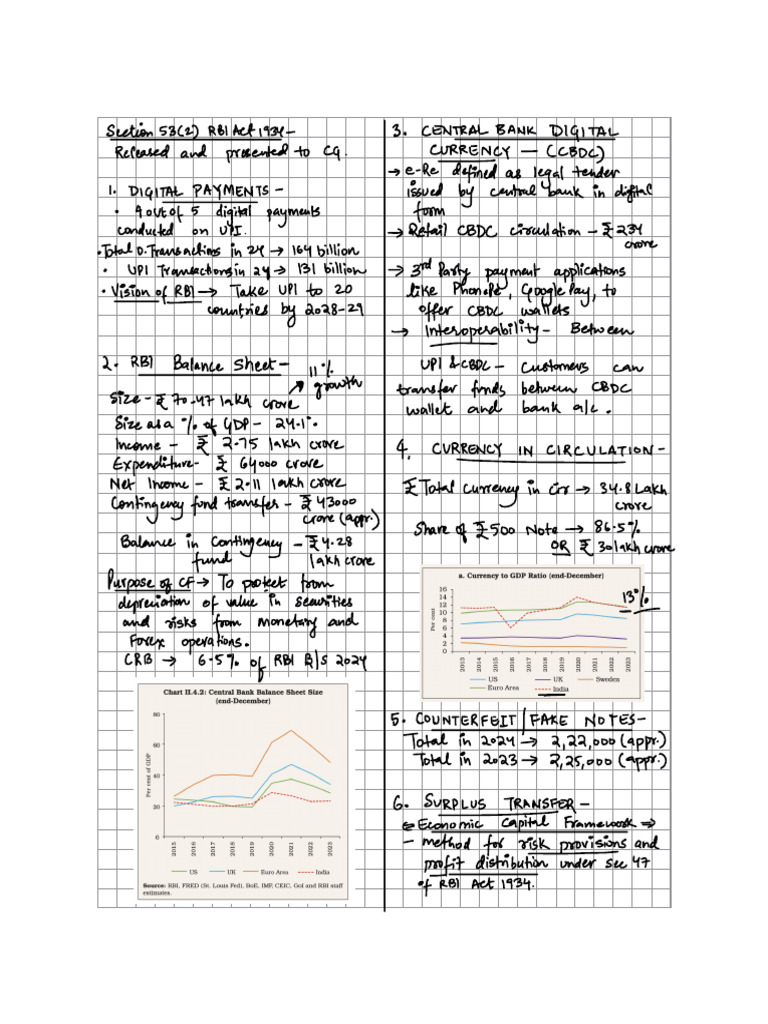 Section 53(2) RBI Act 1934 -
Released and presented to CG.
1. DIGITAL PAYMENTS -
• 4 out of 5 digital payments
conducted on UPI.
• Total D. Transactions in 24 → 164 billion
• UPI Transactions in 24 → 131 billion
• Vision of RBI → Take UPI to 20
countries by 2028-29
2. RBI Balance Sheet -
11%
growth
Size - ₹ 70.47 lakh crore
Size as a % of GDP - 24.1%
Income - ₹ 2.75 lakh crore
Expenditure - ₹ 64000 crore
Net Income - ₹ 2.11 lakh crore
Contingency fund transfer - ₹ 43000
crore (appr.)
Balance in Contingency - ₹ 4.28
fund lakh crore
Purpose of CF → To protect from
depreciation of value in securities
and risks from monetary and
Forex operations.
CRB → 6.5% of RBI B/s 2024
Chart II.4.2: Central Bank Balance Sheet Size
(end-December)
Per cent of GDP
80
60
40
20
0
2015 2016 2017 2018 2019 2020 2021 2022 2023
US UK Euro Area India
Source: RBI, FRED (St. Louis Fed), BoE, IMF, CEIC, GoI and RBI staff
estimates.
3. CENTRAL BANK DIGITAL
CURRENCY - (CBDC)
→ e-Re defined as legal tender
issued by central bank in digital
form
→ Retail CBDC circulation - ₹ 234
crore
→ 3rd Party payment applications
like PhonePe, Google Pay, to
offer CBDC wallets
→ Interoperability - Between
UPI & CBDC - Customers can
transfer funds between CBDC
wallet and bank a/c.
4. CURRENCY IN CIRCULATION -
₹ Total currency in cir → 34.8 Lakh
crore
Share of ₹500 Note → 86.5%
OR ₹ 30 lakh crore
a. Currency to GDP Ratio (end-December)
Per cent
16
14
12
10
8
6
4
2
0
13%
2013 2014 2015 2016 2017 2018 2019 2020 2021 2022 2023
US UK Sweden
Euro Area India
5. COUNTERFEIT / FAKE NOTES -
Total in 2024 → 2,22,000 (appr.)
Total in 2023 → 2,25,000 (appr.)
6. SURPLUS TRANSFER -
Economic Capital Framework ⇒
- method for risk provisions and
profit distribution under sec 47
of RBI Act 1934.